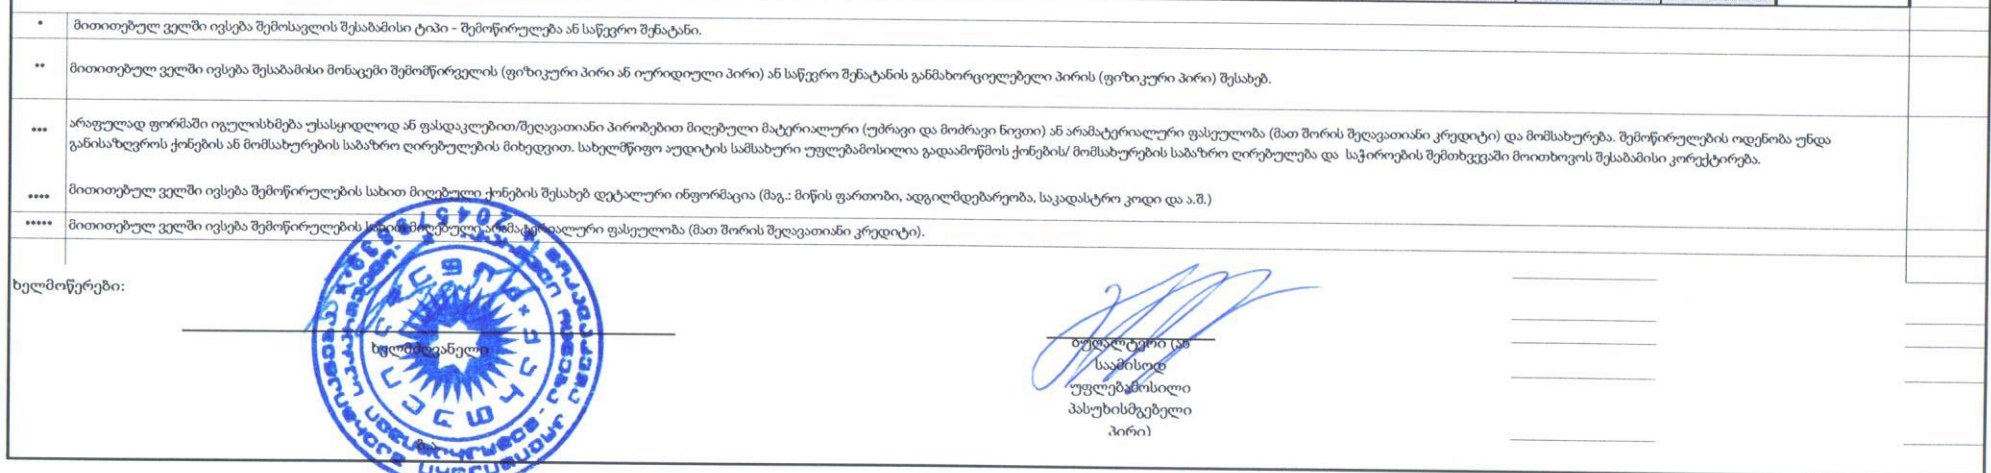 * მითითებულ ველში ივსება შემოსავლის შესაბამისი ტიპი - შემოწირულება ან საწევრო შენატანი.
** მითითებულ ველში ივსება შესაბამისი მონაცემი შემომწირველის (ფიზიკური პირი ან იურიდიული პირი) ან საწევრო შენატანის განმახორციელებელი პირის (ფიზიკური პირი) შესახებ.
*** არაფულად ფორმაში იგულისხმება უსასყიდლოდ ან ფასდაკლებით/შეღავათიანი პირობებით მიღებული მატერიალური (უძრავი და მოძრავი ნივთი) ან არამატერიალური ფასეულობა (მათ შორის შეღავათიანი კრედიტი) და მომსახურება. შემოწირულების ოდენობა უნდა
განისაზღვროს ქონების ან მომსახურების საბაზრო ღირებულების მიხედვით. სახელმწიფო აუდიტის სამსახური უფლებამოსილია გადაამოწმოს ქონების/ მომსახურების საბაზრო ღირებულება და საჭიროების შემთხვევაში მოითხოვოს შესაბამისი კორექტირება.
**** მითითებულ ველში ივსება შემოწირულების სახით მიღებული ქონების შესახებ დეტალური ინფორმაცია (მაგ.: მიწის ფართობი, ადგილმდებარეობა, საკადასტრო კოდი და ა.შ.)
***** მითითებულ ველში ივსება შემოწირულების სახით მიღებული არამატერიალური ფასეულობა (მათ შორის შეღავათიანი კრედიტი).
ხელმოწერები:
ხელმძღვანელი
ბუღალტერი (ან
საამისოდ
უფლებამოსილი
პასუხისმგებელი
პირი)